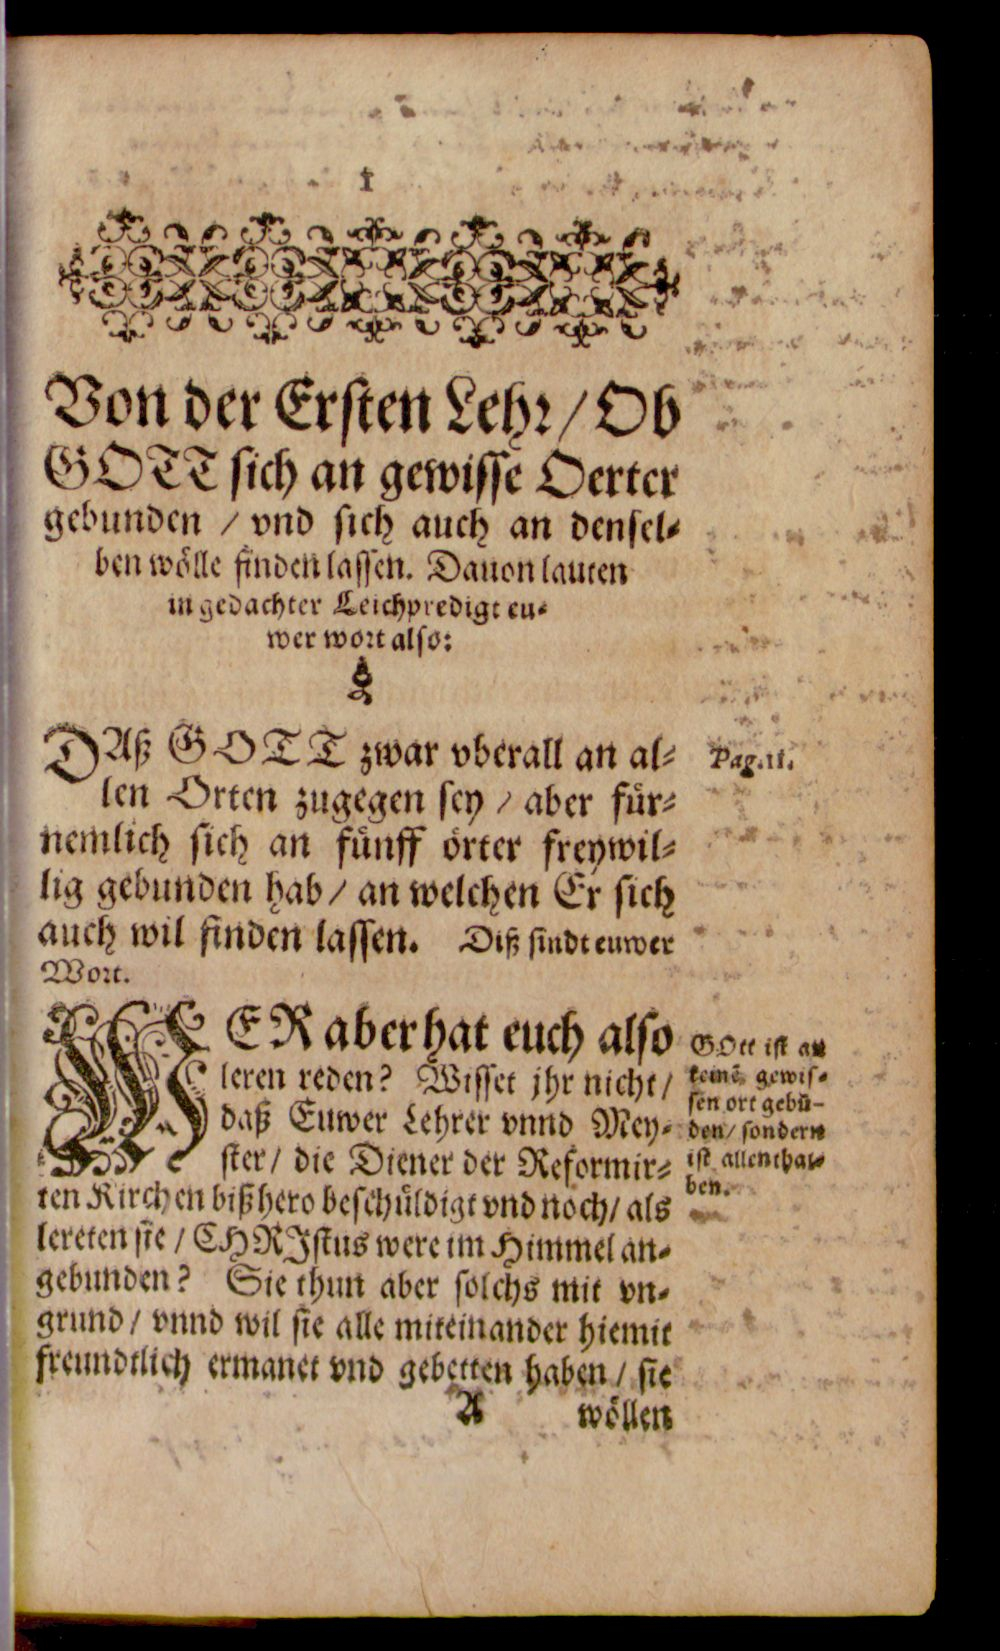 1
Von der Ersten Lehr / Ob
GOTT sich an gewisse Oerter
gebunden / vnd sich auch an densel-
ben wölle finden lassen. Dauon lauten
in gedachter Leichpredigt eu-
wer wort also:
DAß GOTT zwar vberall an al-
len Orten zugegen sey / aber für-
nemlich sich an fünff örter freywil-
lig gebunden hab / an welchen Er sich
auch wil finden lassen. Diß sindt euwer
Wort.
Pag. 11.
WER aber hat euch also
leren reden? Wisset jhr nicht /
daß Euwer Lehrer vnnd Mey-
ster / die Diener der Reformir-
ten Kirchen bißhero beschüldigt vnd noch / als
lereten sie / CHRIstus were im Himmel an-
gebunden? Sie thun aber solchs mit vn-
grund / vnnd wil sie alle miteinander hiemit
freundtlich ermanet vnd gebetten haben / sie
GOtt ist an
keinē gewis-
sen ort gebū-
den / sondern
ist allenthal-
ben.
A wöllen